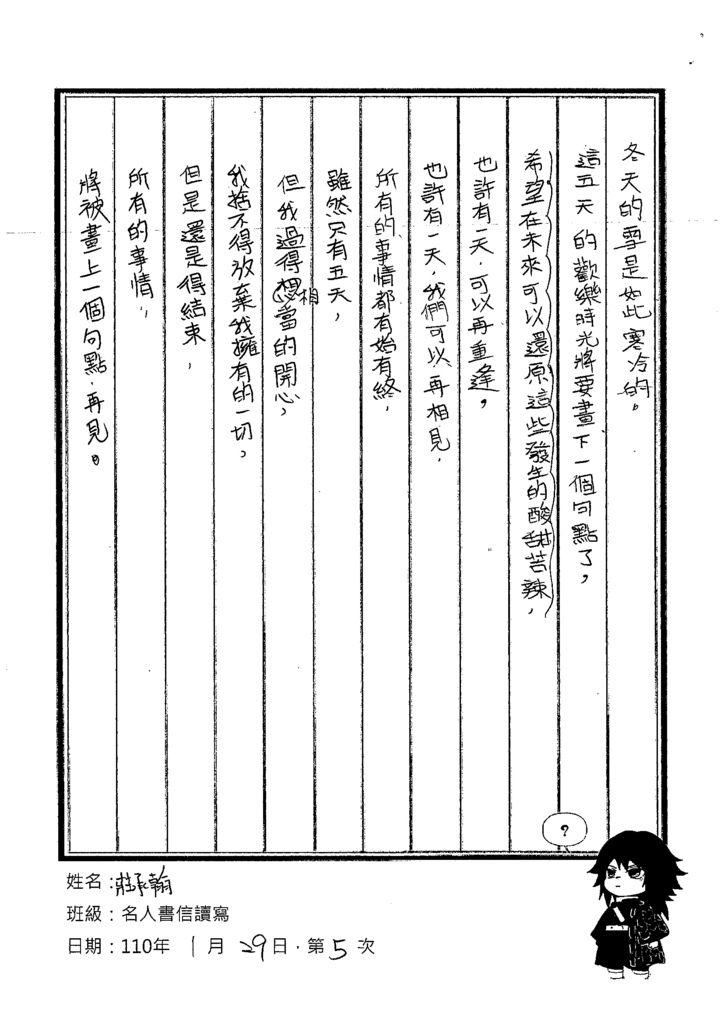 冬天的雪是如此寒冷的。
這五天的歡樂時光將要畫下一個句點了,
希望在未來可以還原這些發生的酸甜苦辣,
也許有一天,可以再重逢,
也許有一天,我們可以再相見,
所有的事情都有始有終,
雖然只有五天,
但我過得相當的開心,
我捨不得放棄我擁有的一切,
但是還是得結束,
所有的事情,
將被畫上一個句點,再見。
?
姓名:莊承翰
班級:名人書信讀寫
日期:110年 1 月 29 日.第 5 次